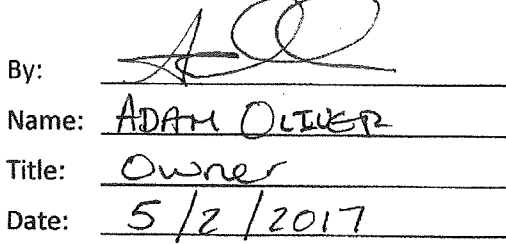 By:
Name: ADAM OLIVER
Title: Owner
Date: 5/2/2017